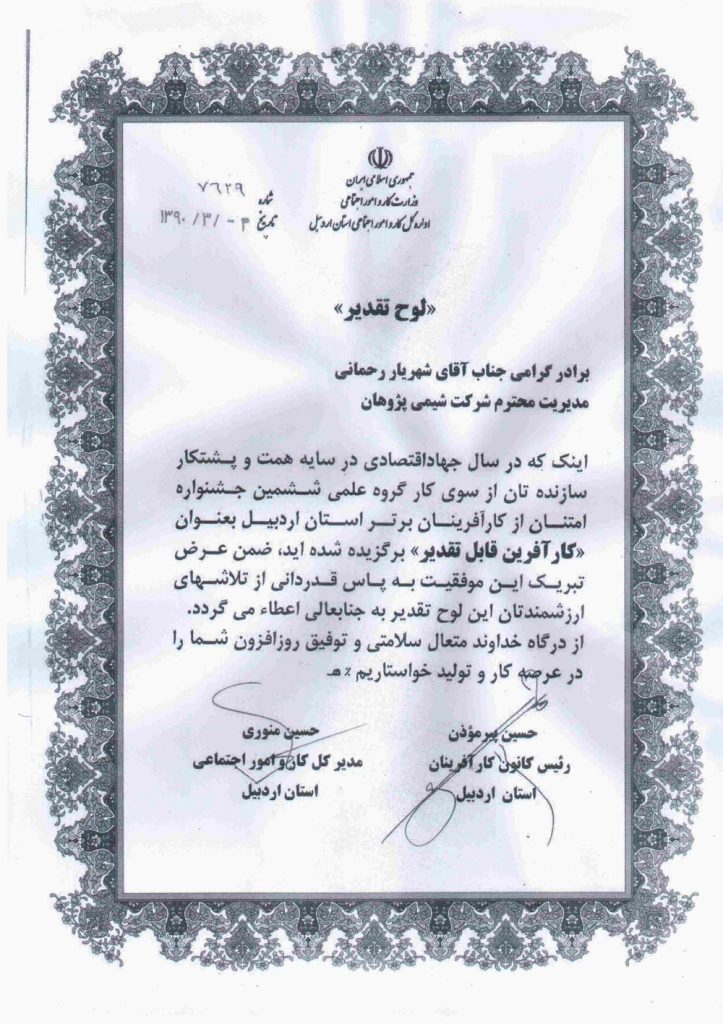 جمهوری اسلامی ایران
وزارت کار و امور اجتماعی
اداره کل کار و امور اجتماعی استان اردبیل
شماره ۷۶۲۹
تاریخ ۱۳۹۰/۳/-۳
«لوح تقدیر»
برادر گرامی جناب آقای شهریار رحمانی
مدیریت محترم شرکت شیمی پژوهان
اینک که در سال جهاداقتصادی در سایه همت و پشتکار
سازنده تان از سوی کار گروه علمی ششمین جشنواره
امتنان از کارآفرینان برتر استان اردبیل بعنوان
«کارآفرین قابل تقدیر» برگزیده شده اید، ضمن عرض
تبریک این موفقیت به پاس قدردانی از تلاشهای
ارزشمندتان این لوح تقدیر به جنابعالی اعطاء می گردد.
از درگاه خداوند متعال سلامتی و توفیق روزافزون شما را
در عرصه کار و تولید خواستاریم ٪ هـ
حسین پیرمؤذن
رئیس کانون کارآفرینان
استان اردبیل
حسین منوری
مدیر کل کار و امور اجتماعی
استان اردبیل